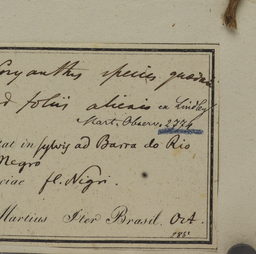 oryanthes species quaedam
d foliis alienis ex Lindley
Mart. Observ. 2776
tat in sylvis ad Barra do Rio
Negro
ciae fl. Nigri.
Martius Iter Brasil. Oct.